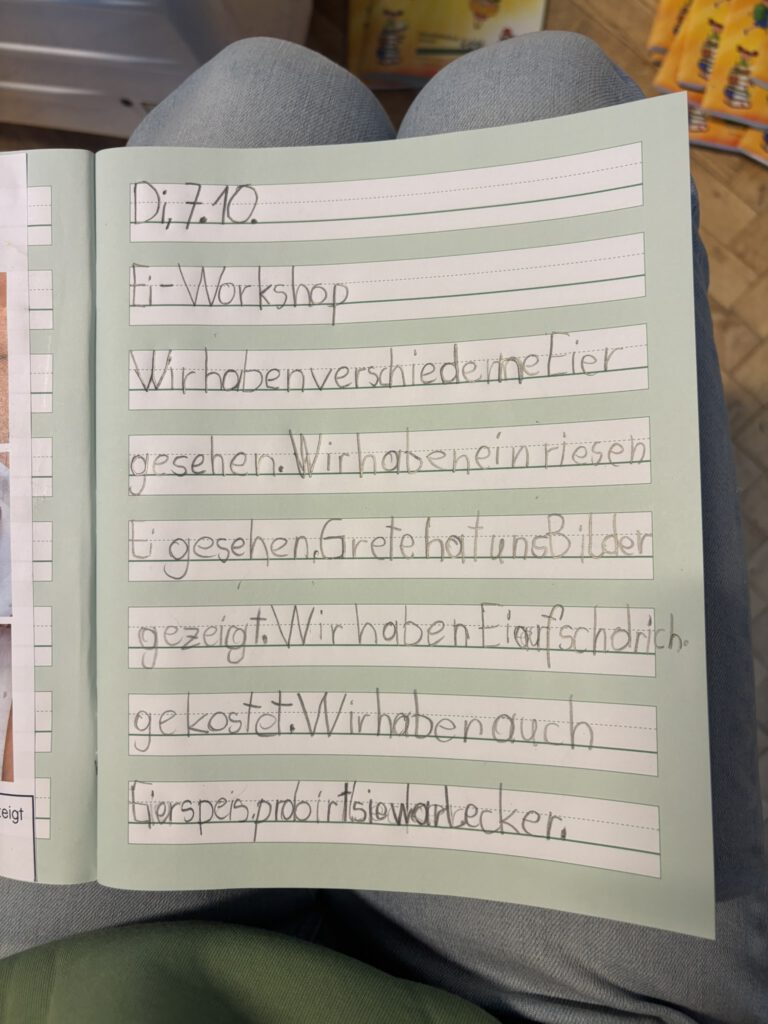 Di, 7.10.
Ei-Workshop
Wir haben verschiedenne Eier
gesehen. Wir haben ein riesen
Ei gesehen. Grete hat uns Bilder
gezeigt. Wir haben Eiaufschdrich.
gekostet. Wir haben auch
Eierspeis. probirt sie war Lecker.
zeigt